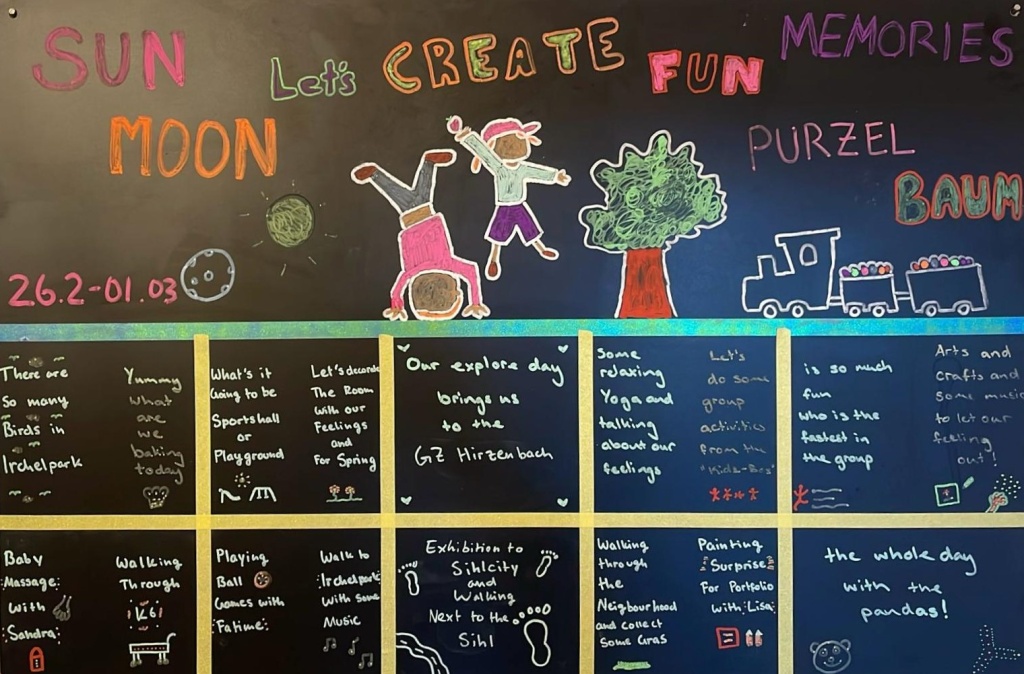 SUN
Let's CREATE FUN
MEMORIES
MOON
PURZEL
BAUM
26.2-01.03
There are
So many
Birds in
Irchelpark
Yummy
what
are
we
baking
today
What's it
Going to be
Sportshall
or
Playground
Let's decorate
The Room
with our
Feelings
and
For Spring
Our explore day
brings us
to the
GZ Hirzenbach
Some
relaxing
Yoga and
talking
about our
feelings
Let's
do some
group
activities
from the
"Kids-Box"
is so much
fun
who is the
fastest in
the group
Arts and
crafts and
some music
to let our
feeling
out!
Baby
Massage
With
Sandra
Walking
Through
K6
Playing
Ball
Games with
Fatime
Walk to
Irchelpark
With some
Music
Exhibition to
Sihlcity
and
Walking
Next to the
Sihl
Walking
through
the
Neighbourhood
and collect
Some Gras
Painting
Surprise
For Portfolio
with Lisa
the whole day
with the
pandas!